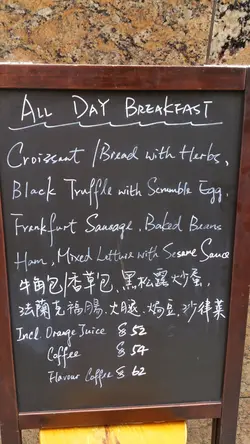 ALL DAY BREAKFAST
Croissant / Bread with Herbs,
Black Truffle with Scrumble Egg,
Frankfurt Sausage, Baked Beans
Ham, Mixed Lettuce with Sesame Sauce
牛角包/香草包, 黑松露炒蛋,
法蘭克福腸, 火腿, 焗豆, 沙律菜
Incl. Orange Juice $52
Coffee $54
Flavour Coffee $62